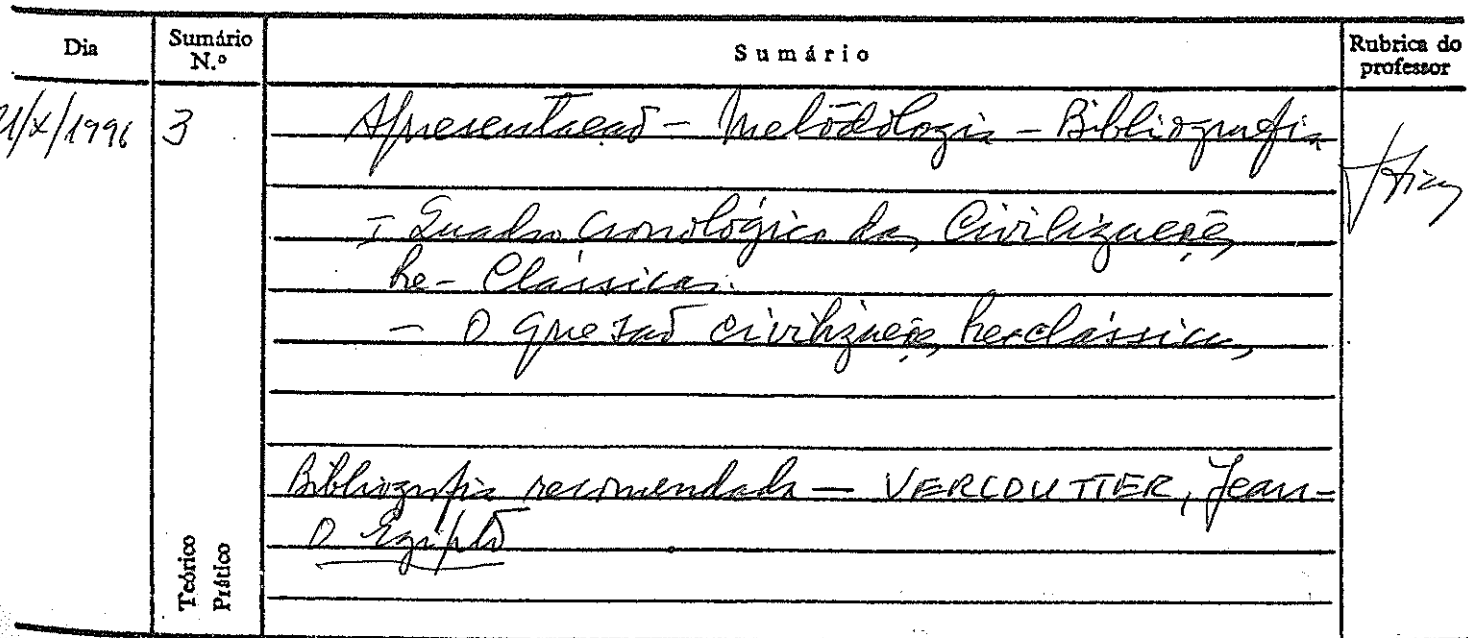 Dia Sumário N.º Sumário Rubrica do professor
/X/1996 3 Apresentação - Metodologia - Bibliografia
I Quadro Cronológico das Civilizações
Pré-Clássicas.
- O que são civilizações Preclássicas
Bibliografia recomendada — VERCOUTTER, Jean-
O Egipto
Teórico
Prático